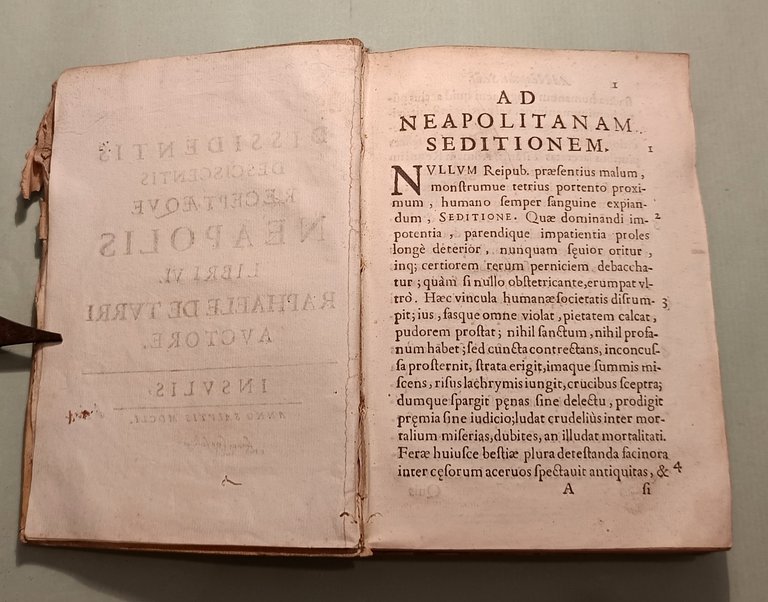 DISSIDENTIS
DESCISCENTIS
RECEPTÆQVE
NEAPOLIS
LIBRI VI.
RAPHAELE DE TVRRI
AVCTORE.
INSVLIS.
ANNO SALVTIS MDCLI.
1
AD
NEAPOLITANAM
SEDITIONEM.
1
NVLLVM Reipub. præsentius malum,
monſtrumue tetrius portento proxi-
mum, humano ſemper ſanguine expian-
dum, SEDITIONE. Quæ dominandi im- 2
potentia, parendique impatientia proles
longè deterior, nunquam ſęuior oritur,
inq; certiorem rerum perniciem debaccha-
tur; quàm ſi nullo obſtetricante, erumpat vl-
trò. Hæc vincula humanæ ſocietatis diſrum- 3
pit; ius, fasque omne violat, pietatem calcat,
pudorem proſtat; nihil ſanctum, nihil profa-
num habet; ſed cuncta contrectans, inconcuſ-
ſa proſternit, ſtrata erigit, imaque ſummis mi-
ſcens, riſus lachrymis iungit, crucibus ſceptra;
dumque ſpargit pęnas ſine delectu, prodigit
pręmia ſine iudicio; ludat crudeliùs inter mor-
talium miſerias, dubites, an illudat mortalitati.
Feræ huiuſce beſtiæ plura deteſtanda facinora
inter cęſorum aceruos ſpectauit antiquitas, & 4
A ſi